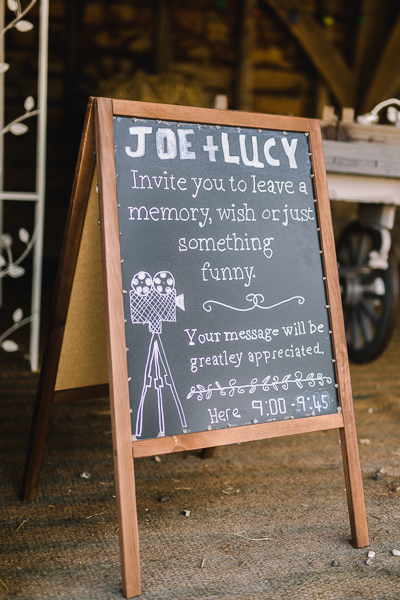 JOE + LUCY
Invite you to leave a
memory, wish or just
something
funny.
Your message will be
greatley appreciated.
Here 9:00 - 9:45